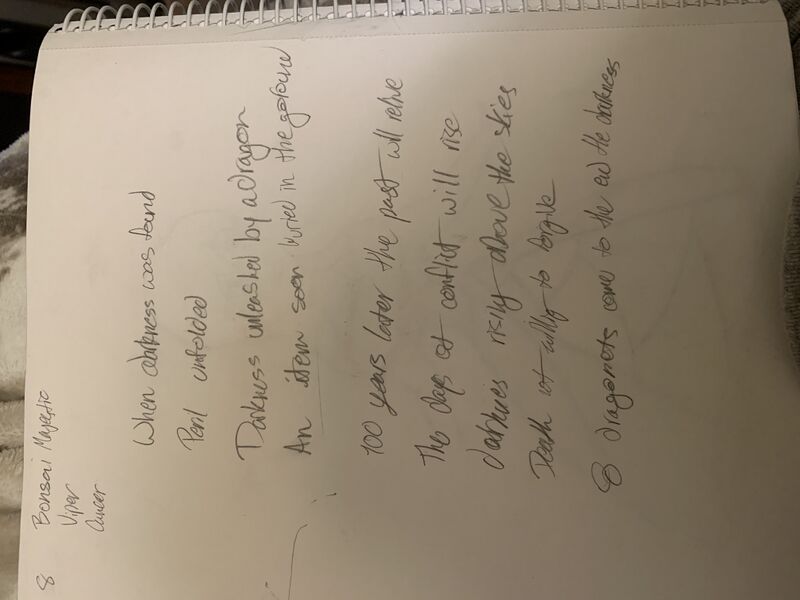 8 Bonsai Majestic
Viper
Cancer
When darkness was found
Peril unfolded
Darkness unleashed by a dragon
An item soon buried in the
100 years later the past will relive
The days of conflict will rise
darknes rising above the skies
Death not willing to forgive
8 dragonets come to the end the darkness